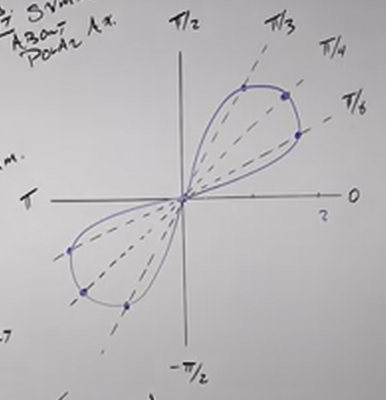 SYM
ABOUT
POLAR AX.
π/2
π/3
π/4
π/6
π
0
2
-π/2